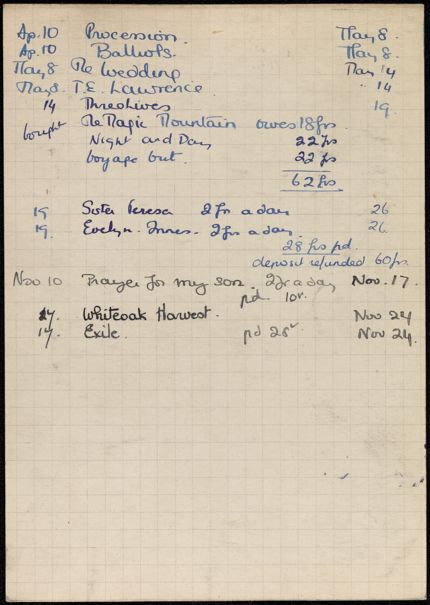 Ap. 10 Procession. May 8.
Ap. 10 Balliols. May 8.
May 8 The Wedding May 14
May 8. T.E. Lawrence " 14
14 Three Lives 19
bought The Magic Mountain owes 18 frs.
Night and Day 22 frs
Voyage Out. 22 frs
62 frs
19 Sister Teresa 2 fr a day 26
19. Evelyn Innes. 2 frs a day. 26
28 frs pd.
deposit refunded 60 frs.
Nov 10 Prayer for my son. 2 fr a day Nov. 17.
pd. 10
17. Whiteoak Harvest. Nov 24
17. Exile. pd 28 Nov 24.